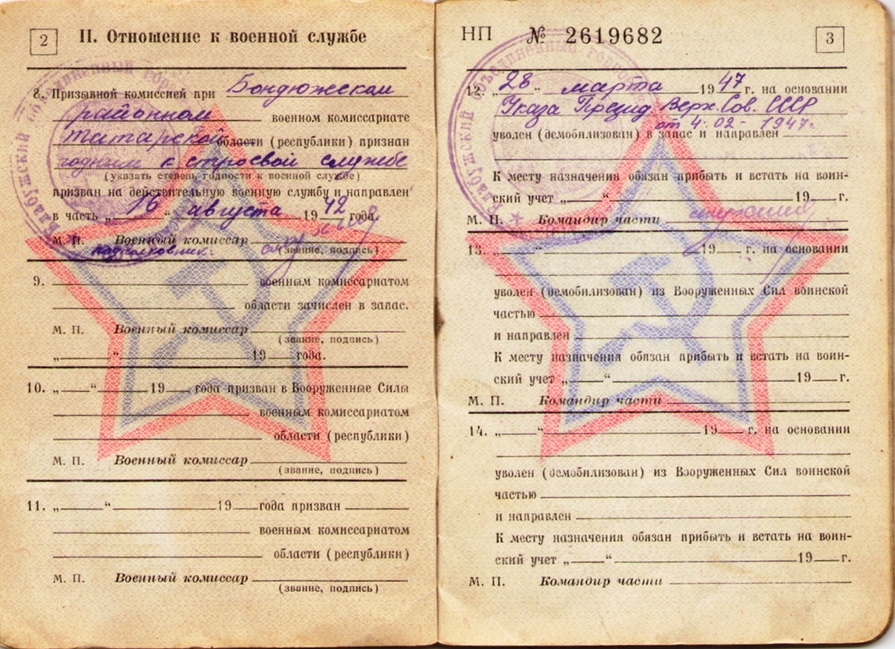 2 II. Отношение к военной службе
8. Призывной комиссией при Бондюжском
районном военном комиссариате
Татарской области (республики) признан
годным к строевой службе
(указать степень годности к военной службе)
призван на действительную военную службу и направлен
в часть „16“ августа 1942 года.
М. П. Военный комиссар
подполковник (звание, подпись)
9. военным комиссариатом
области зачислен в запас.
М. П. Военный комиссар
(звание, подпись)
„ “ 19 года.
10. „ “ 19 года призван в Вооруженные Силы
военным комиссариатом
области (республики)
М. П. Военный комиссар
(звание, подпись)
11. „ “ 19 года призван
военным комиссариатом
области (республики)
М. П. Военный комиссар
(звание, подпись)
НП № 2619682 3
12. 28 марта 1947 г. на основании
Указа Презид. Верх. Сов. СССР
от 4.02-1947г.
уволен (демобилизован) в запас и направлен
К месту назначения обязан прибыть и встать на воин-
ский учет „ “ 19 г.
М. П. Командир части
13. „ “ 19 г. на основании
уволен (демобилизован) из Вооруженных Сил воинской
частью
и направлен
К месту назначения обязан прибыть и встать на воин-
ский учет „ “ 19 г.
М. П. Командир части
14. „ “ 19 г. на основании
уволен (демобилизован) из Вооруженных Сил воинской
частью
и направлен
К месту назначения обязан прибыть и встать на воин-
ский учет „ “ 19 г.
М. П. Командир части